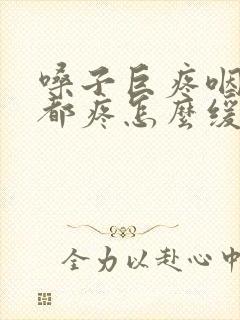 嗓子巨疼咽
都疼怎麼缓
全力以赴心中